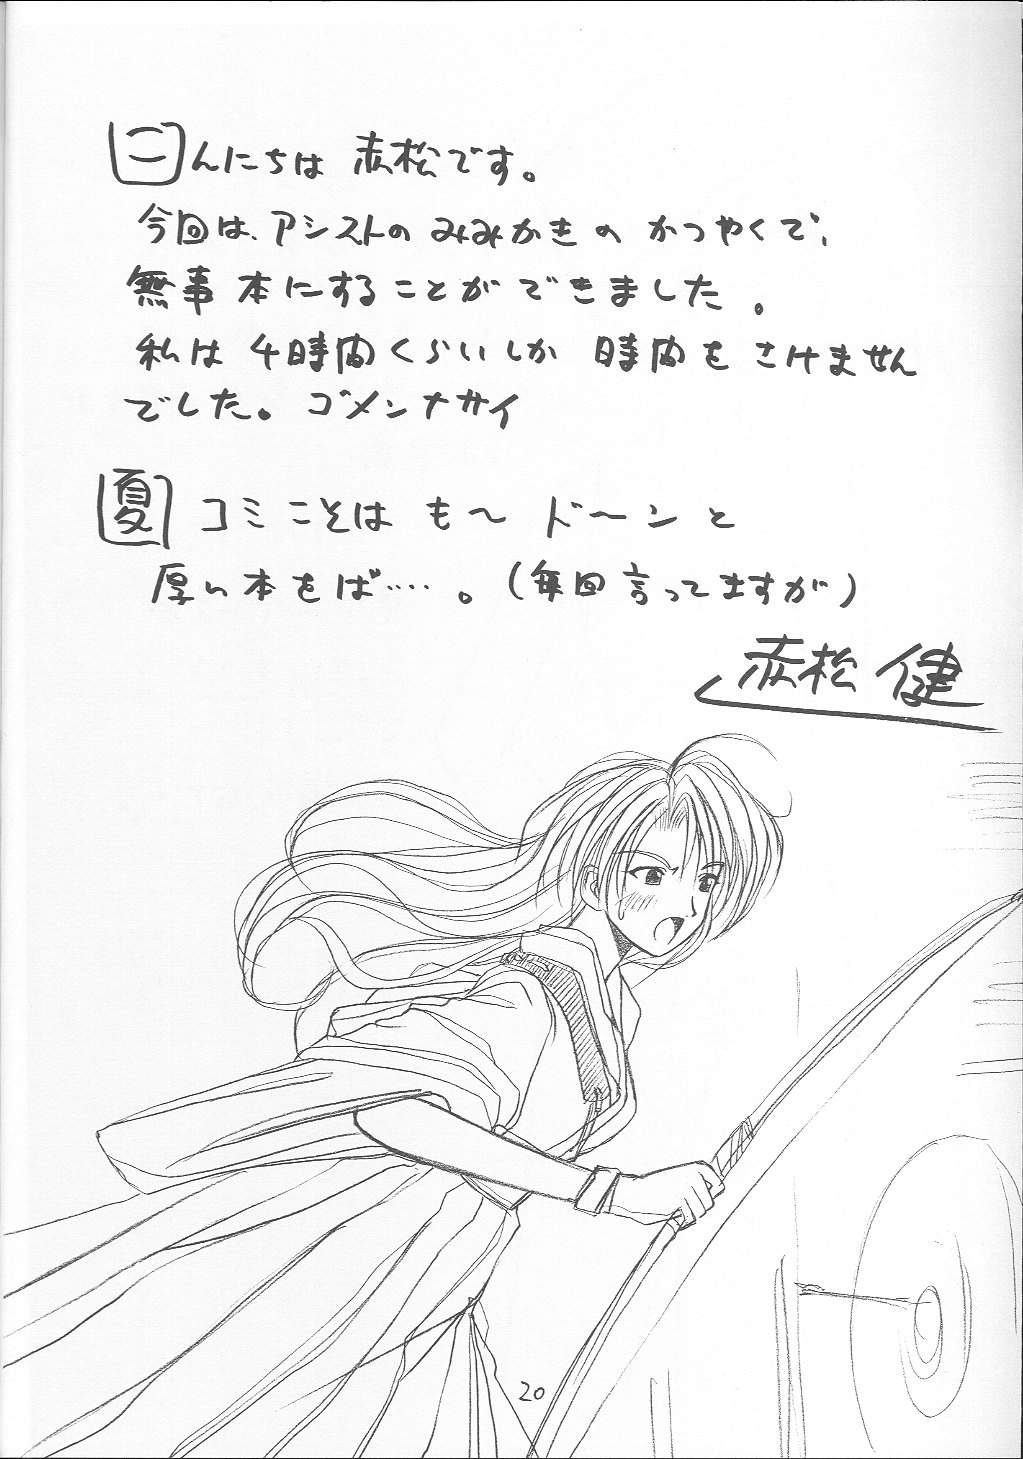 こんにちは 赤松です。
今回は、アシストの みみかきの かつやくで、
無事 本にすることができました。
私は 4時間くらいしか 時間を さけません
でした。ゴメンナサイ
夏コミこそは も〜 ド〜ンと
厚い本をば‥‥。(毎回言ってますが)
赤松 健
20